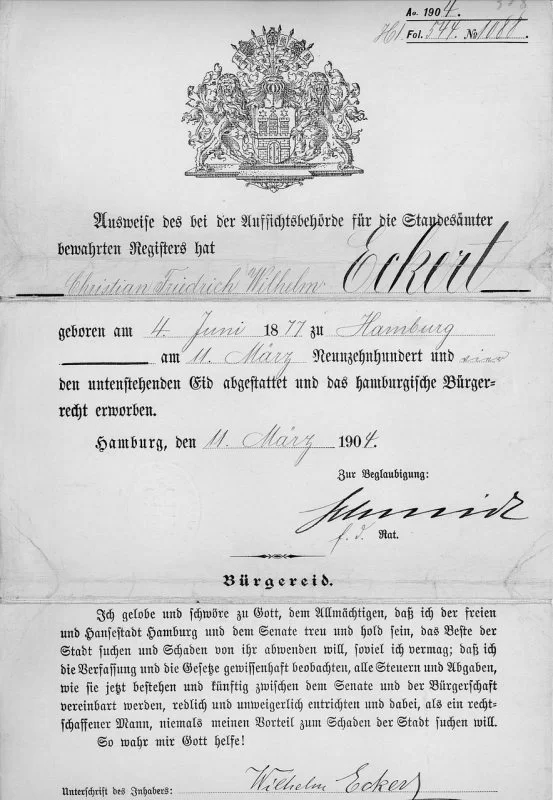 Ao. 1904.
Fol. 544. No 1088
Ausweise des bei der Aufsichtsbehörde für die Standesämter
bewahrten Registers hat
Christian Friedrich Wilhelm Eckert
geboren am 4. Juni 1877 zu Hamburg
am 11. März Neunzehnhundert und vier
den untenstehenden Eid abgestattet und das hamburgische Bürger-
recht erworben.
Hamburg, den 11. März 1904.
Zur Beglaubigung:
Schmidt
f. d. Rat.
Bürgereid.
Ich gelobe und schwöre zu Gott, dem Allmächtigen, daß ich der freien
und Hansestadt Hamburg und dem Senate treu und hold sein, das Beste der
Stadt suchen und Schaden von ihr abwenden will, soviel ich vermag; daß ich
die Verfassung und die Gesetze gewissenhaft beobachten, alle Steuern und Abgaben,
wie sie jetzt bestehen und künftig zwischen dem Senate und der Bürgerschaft
vereinbart werden, redlich und unweigerlich entrichten und dabei, als ein recht-
schaffener Mann, niemals meinen Vorteil zum Schaden der Stadt suchen will.
So wahr mir Gott helfe!
Unterschrift des Inhabers: Wilhelm Eckert